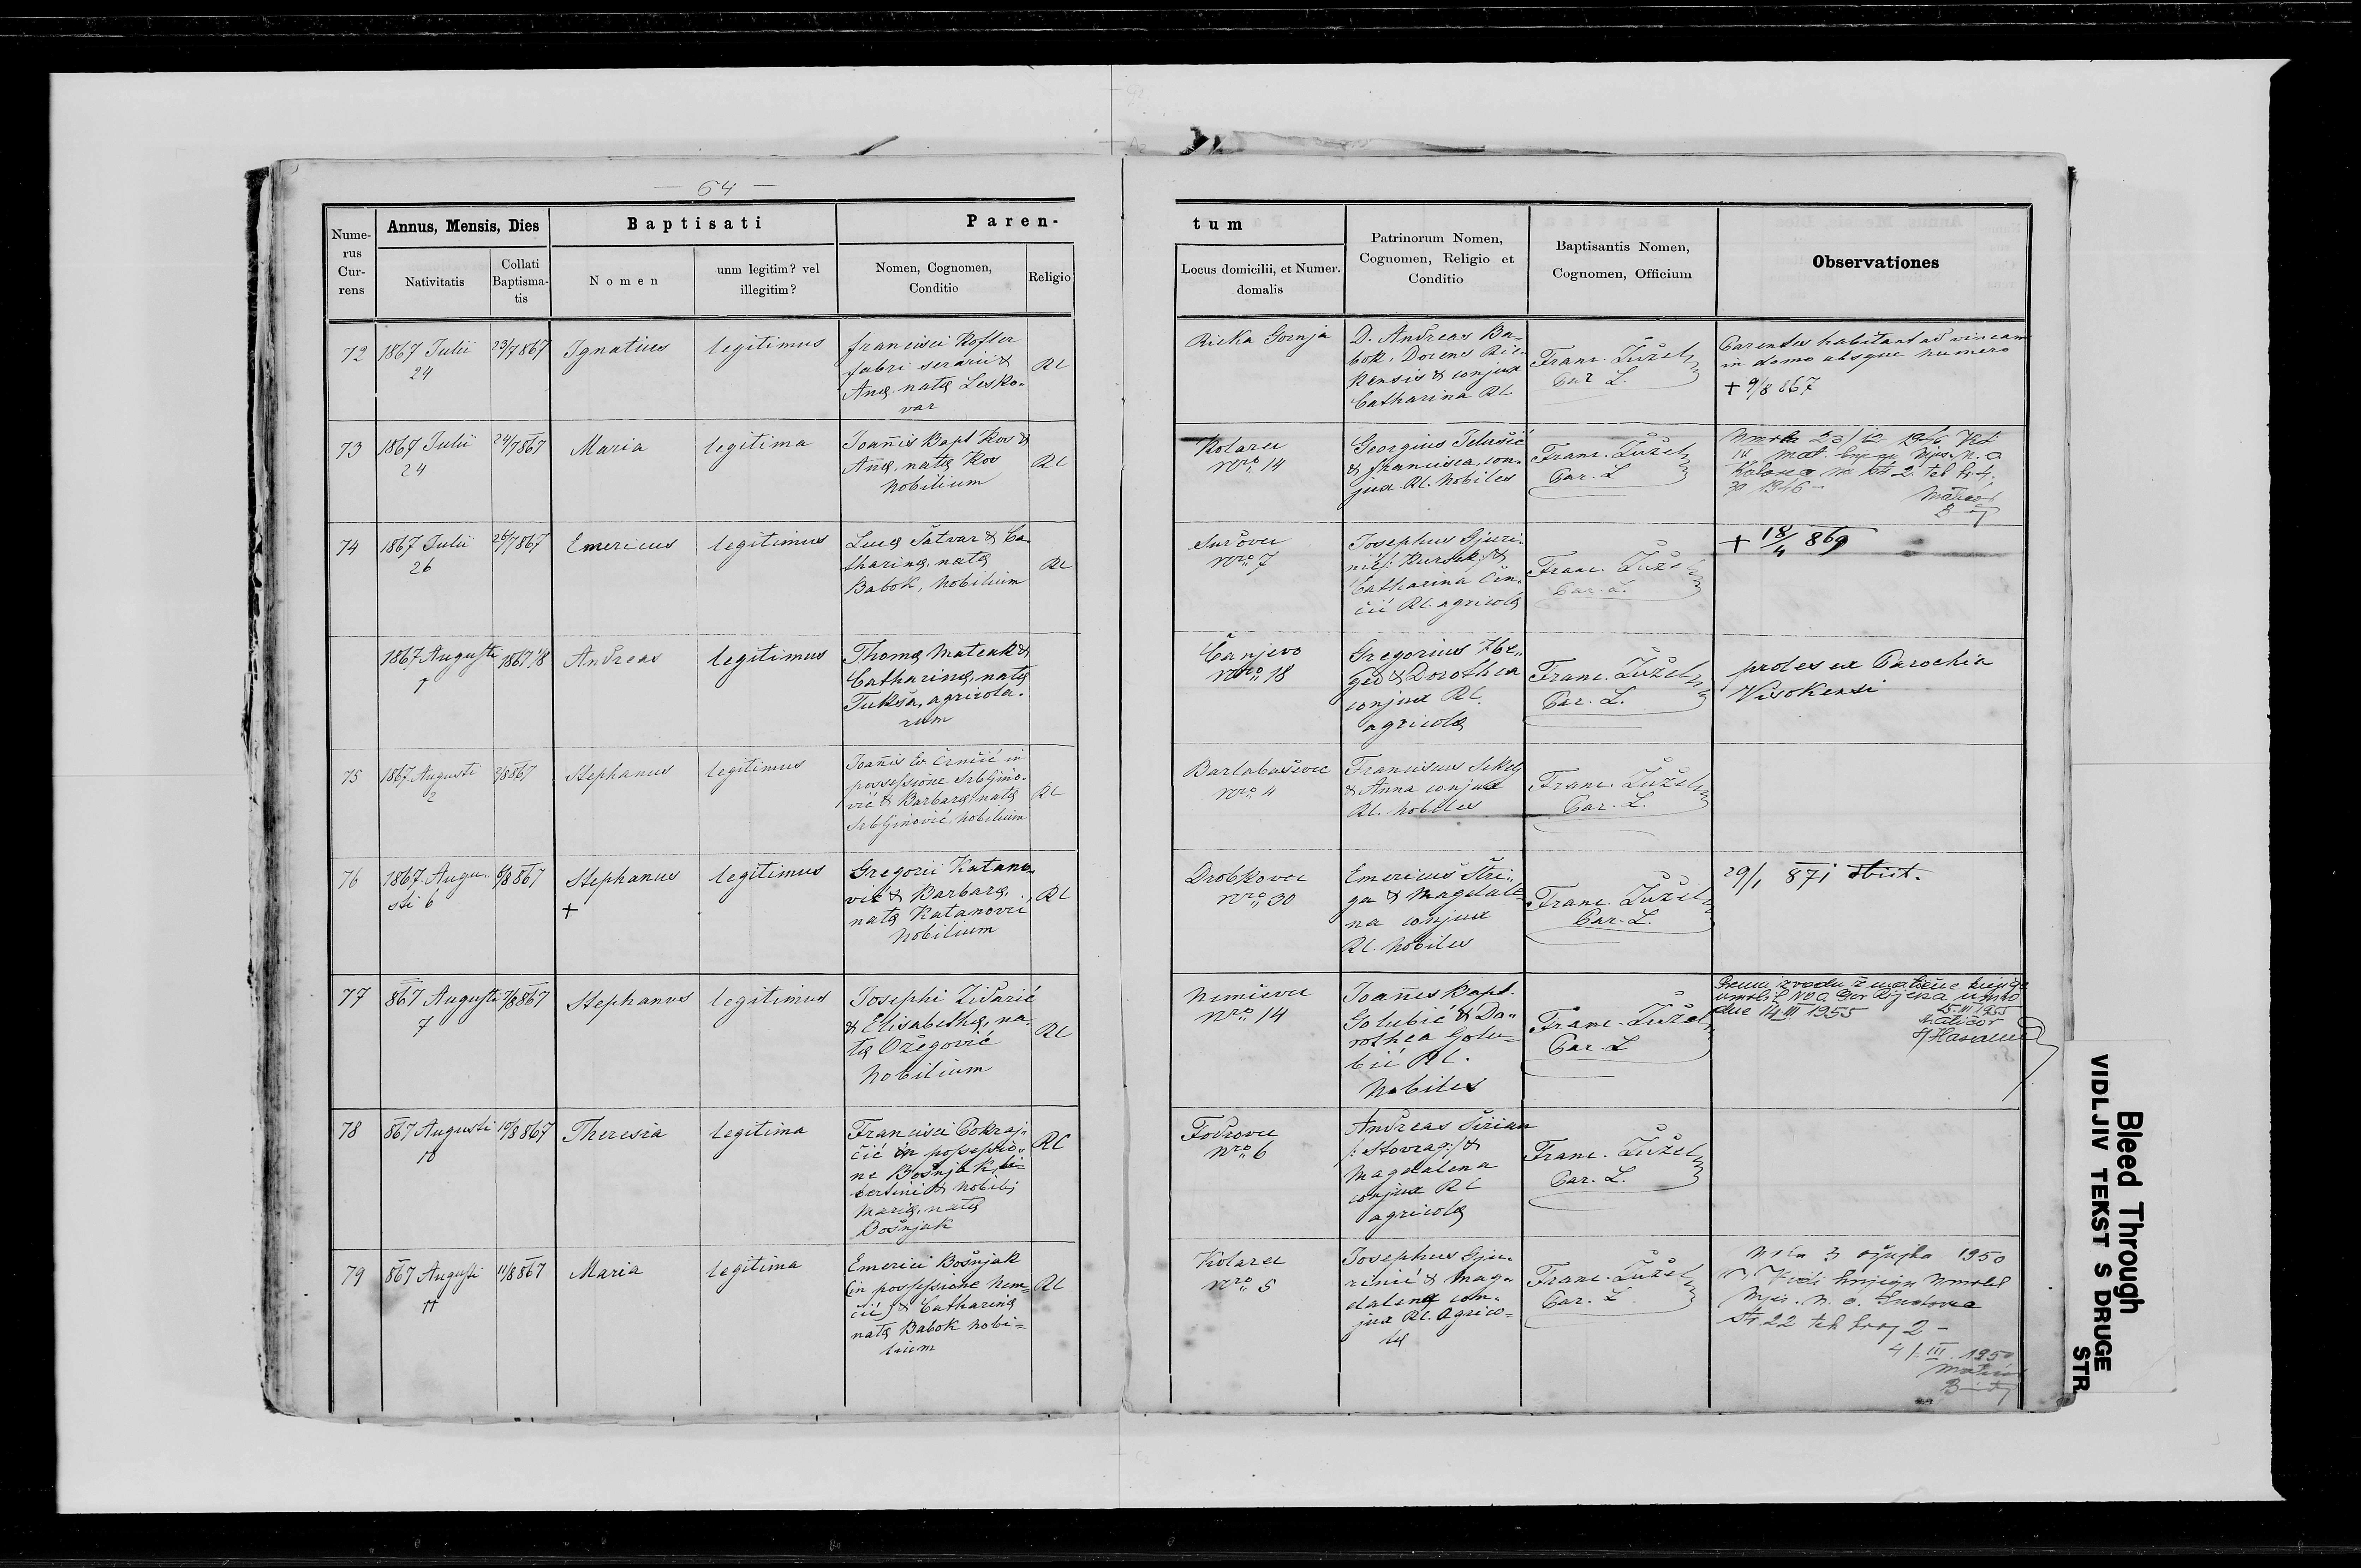 — 64 —
Nume-
rus
Cur-
rens
Annus, Mensis, Dies
Nativitatis
Collati
Baptisma-
tis
Baptisati
Nomen
unm legitim? vel
illegitim?
Paren-
Nomen, Cognomen,
Conditio
Religio
tum
Locus domicilii, et Numer.
domalis
Patrinorum Nomen,
Cognomen, Religio et
Conditio
Baptisantis Nomen,
Cognomen, Officium
Observationes
72
1867 Julii
24
Ignatius
legitimus
Francisci Kofler
fabri serarii &
Anæ natæ Lesko-
var
RC
Rieka Gornja
D. Andreas Ba-
bok, Docens Rie-
kensis & conjux
Catharina RC
Franc. Žužel
Par. L.
Parentes habitant ad vineam
in domo absque numero
+ 9/8 867
73
1867 Julii
24
24/7 867
Maria
legitima
Joañis Bapt Kos &
Añæ, natæ Kos
Nobilium
RC
Kolarec
Nro 14
Georgius
& Francisca, con-
jux RC. Nobiles
Franc. Žužel
Par. L
1946
74
1867 Julii
26
26/7 867
Emericus
legitimus
Lucæ Šatvar & Ca-
tharinæ, natæ
Babok, Nobilium
RC
Nro 7
Josephus Gjuri-
Catharina
RC. agricolæ
Franc. Žužel
Par. L.
+ 18/4 869
1867 Augusti
1
1867 1/8
Andreas
legitimus
Thomæ Mateak &
Catharinæ, natæ
Tukša, agricola-
rum
Čanjevo
Nro 18
Gregorius
& Dorothea
conjux RC.
agricolæ
Franc. Žužel
Par. L.
proles ex Parochia
Visokensi
75
1867 Augusti
2
2/8 867
Stephanus
legitimus
Joañis Ev. Črnčić in
possessione Srbljino-
vić & Barbaræ, natæ
Srbljinović Nobilium
RC
Barlabaševec
Nro 4
Franciscus
& Anna conjux
RC. Nobiles
Franc. Žužel
Par. L.
76
1867 Augu-
sti 6
6/8 867
Stephanus
+
legitimus
Gregorii Katano-
vić & Barbaræ,
natæ Katanović
Nobilium
RC
Drobkovec
Nro 30
Emericus Štri-
ga & Magdale-
na conjux
RC. Nobiles
Franc. Žužel
Par. L.
29/1 871 obiit.
77
867 Augusti
7
7/8 867
Stephanus
legitimus
Josephi Židarić
& Elisabethæ, na-
tæ Ožegović
Nobilium
RC
Nemčevec
Nro 14
Joañes Bapt.
Golubić & Do-
rothea Golu-
bić RC.
Nobiles
Franc. Žužel
Par. L
dne 14 III 1955
15. III 1955
Matičar
78
867 Augusti
10
10/8 867
Theresia
legitima
Francisci Pokraj-
čić in possessio-
ne Bošnjak, li-
bertini & Nobilis
Mariæ, natæ
Bošnjak
RC
Fodrovec
Nro 6
Andreas Širian
/: Stovrag :/ &
Magdalena
conjux RC
agricolæ
Franc. Žužel
Par. L.
79
867 Augusti
11
11/8 867
Maria
legitima
Emerici Bošnjak
(in possessione Nem-
čić) & Catharinæ
natæ Babok Nobi-
lium
RC
Kolarec
Nro 5
Josephus Gju-
rinić & Mag-
dalena con-
jux RC. Agrico-
læ
Franc. Žužel
Par. L
3 ožujka 1950
Str. 22 tek broj 2 -
4/. III. 1950
Bleed Through
VIDLJIV TEKST S DRUGE
STR